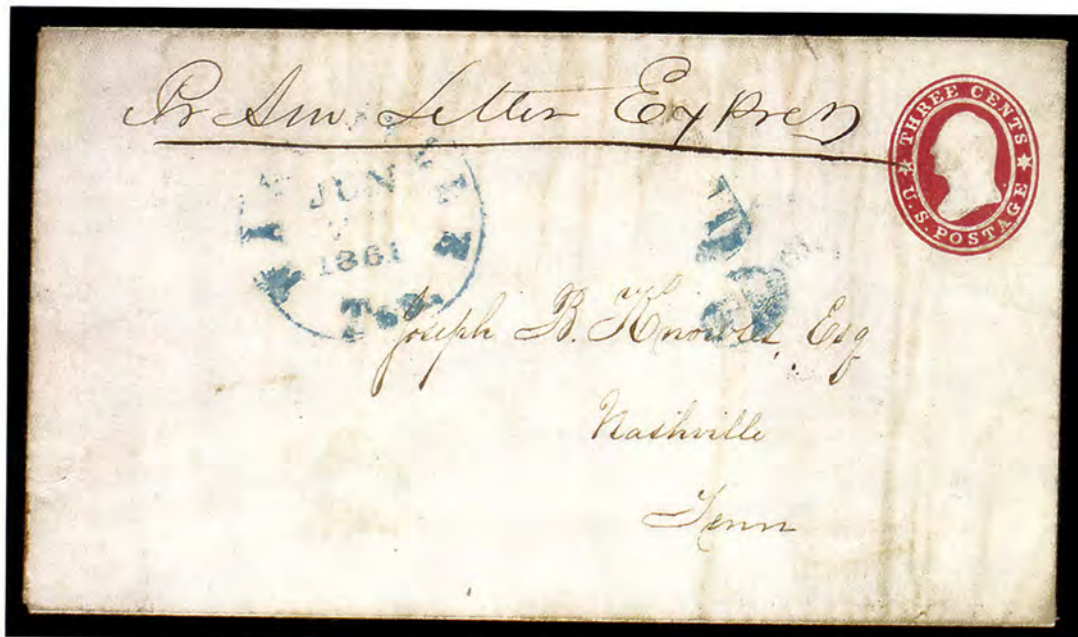 Pr Am Letter Express
THREE CENTS
U.S. POSTAGE
JUN
1861
Ten.
Joseph B. Knowles, Esq
Nashville
Tenn